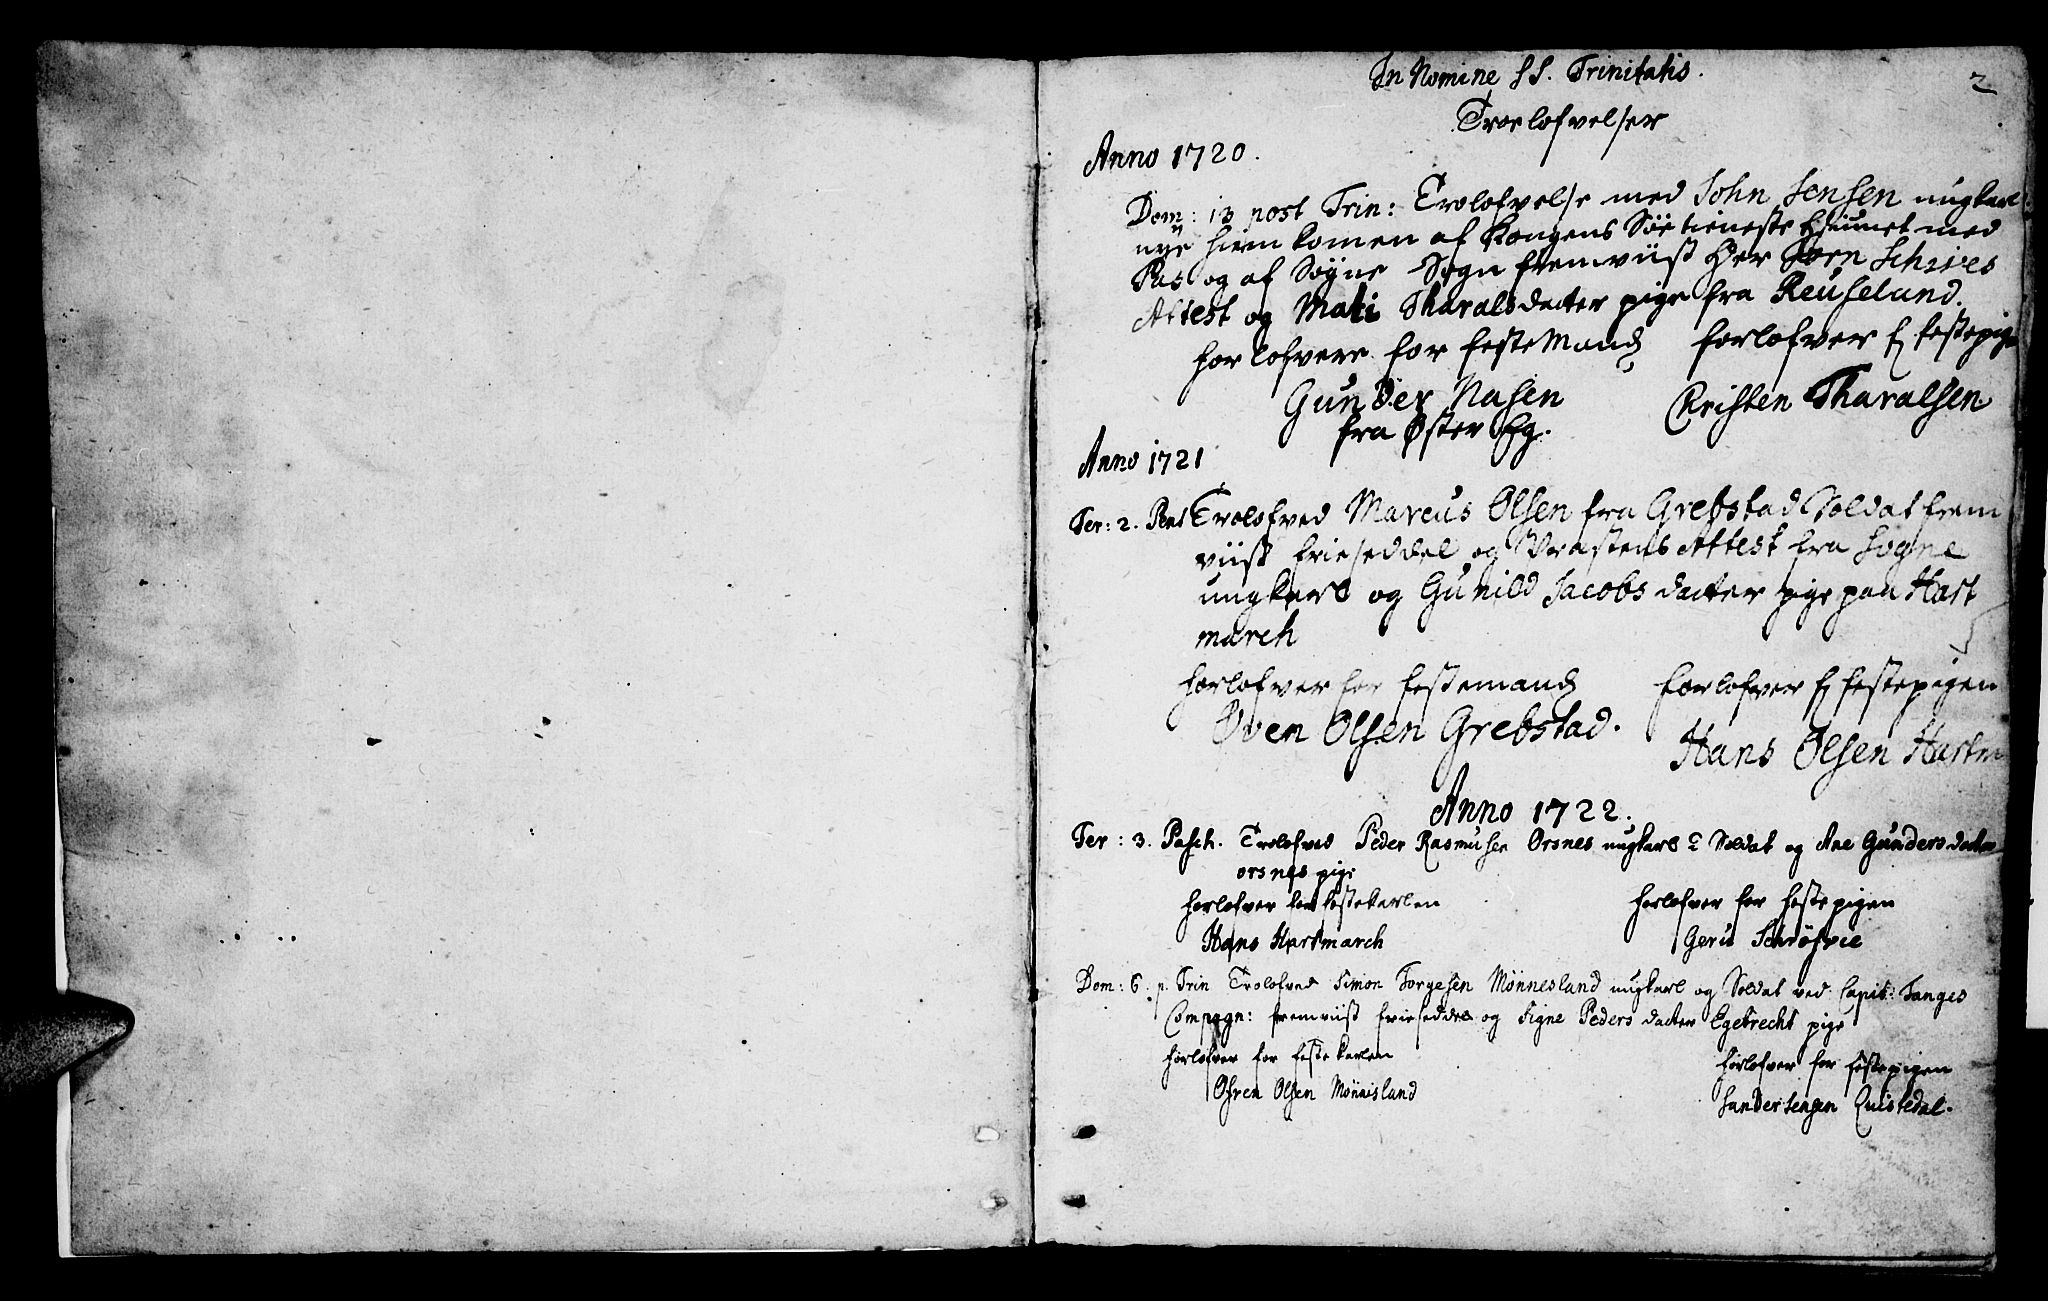 2
In Nomine SS. Trinitatis.
Troelofvelser
Anno 1720.
Dom: 13 post Trin: Trolofvelse med John Jensen ungkarl
nye hiem komen af Kongens Söe tieneste med
Pas og af Sogne Sogn fremviist Her Jörn Schives
Attest og Mari Tharalsdatter pige fra Reuseland.
forlofvere for festeMand forlofver f festepige
Gunder Nasen Christen Tharalsen
fra Øster Eg.
Anno 1721
Fer: 2. Pent Trolofved Marcus Olsen fra Grebstad Soldat frem
viist frieseddel og Præstens Attest fra Sogne
ungkarl og Gunild Jacobs datter pige paa Hart
march
forlofver for festemand forlofver f festepigen
Oven Olsen Grebstad. Hans Olsen Hartm
Anno 1722.
Fer: 3. Pasch. Trolofved Peder Rasmusen Orsnes ungkarl Soldat og Ane Gunders datter
orsnes pige
forlofver for festekarlen forlofver for festepigen
Hans Hartmarch Schröfvee
Dom: 6. p. Trin Trolofved Simon Torgesen Mönnesland ungkarl og Soldat ved Capit: Tanges
Compagn: fremviist frieseddel og Signe Peders datter Egebrecht pige
forlofver for festekarlen forlofver for festepigen
Olsen Mönnisland Sander Jensen Quistedal.